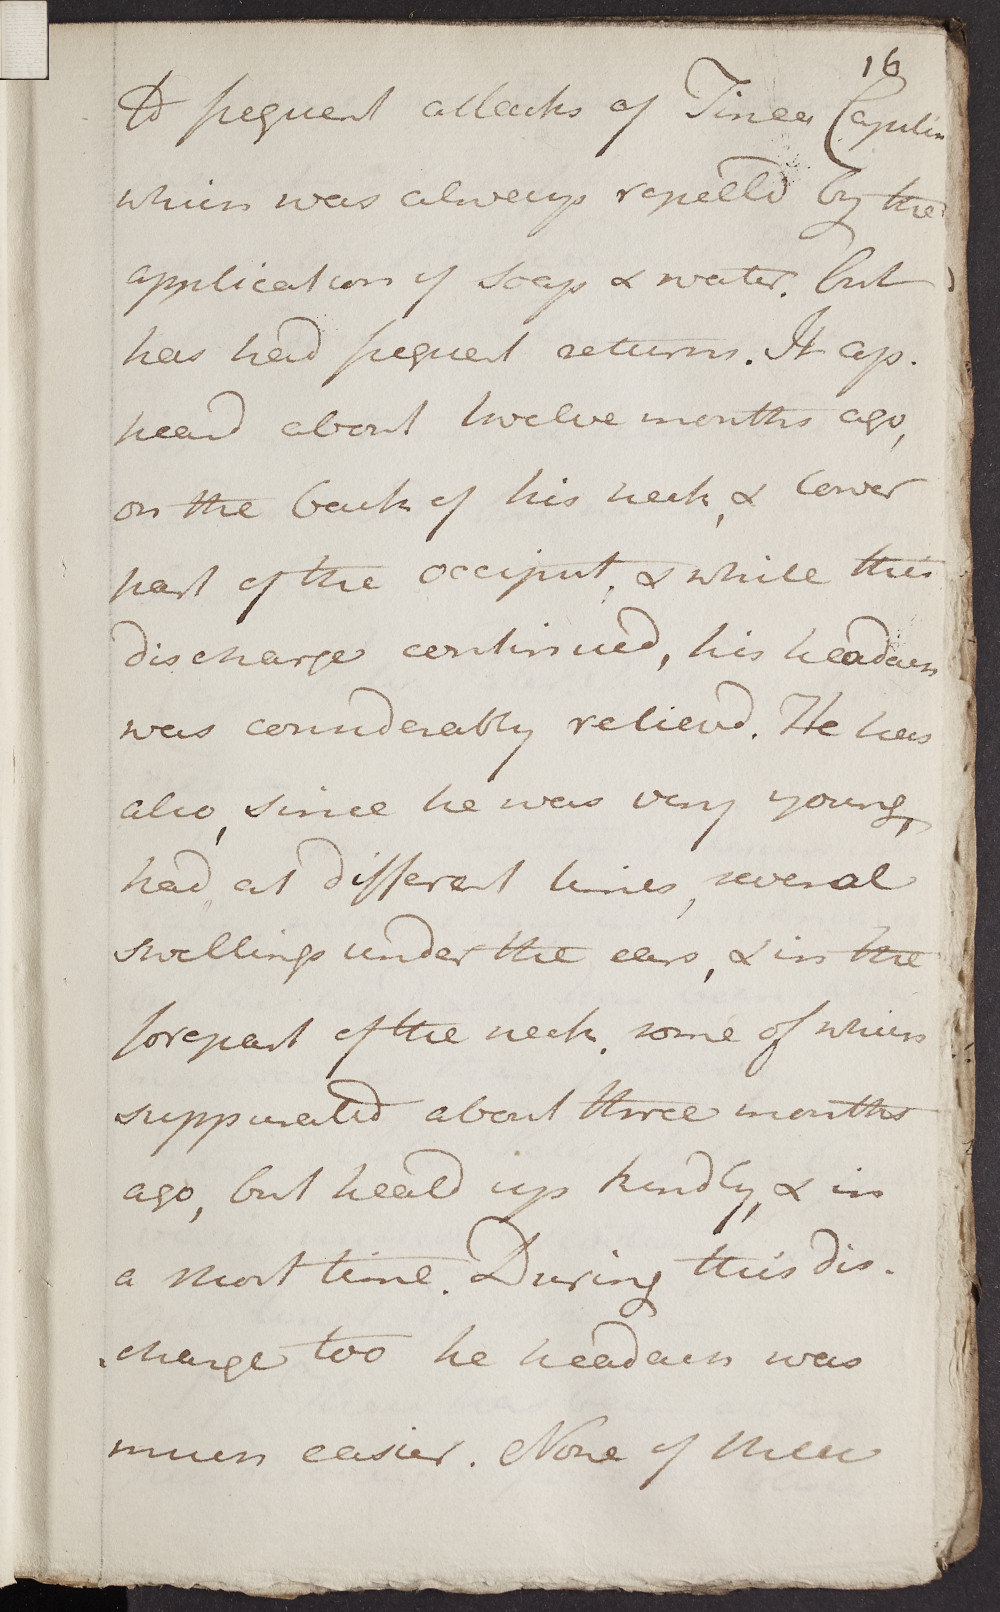 16
to frequent attacks of Tinea Capitis
which was always repelld by the
application of soap & water. but
has had frequent returns. It ap-
peard about twelve months ago,
on the back of his neck, & lower
part of the occiput, & while this
discharge continued, his headach
was considerably relievd. He has
also, since he was very young,
had, at different times, several
swellings under the ears, & in the
forepart of the neck, some of which
suppurated about three months
ago, but heald up kindly, & in
a short time. During this dis-
-charge too he headach was
much easier. None of these